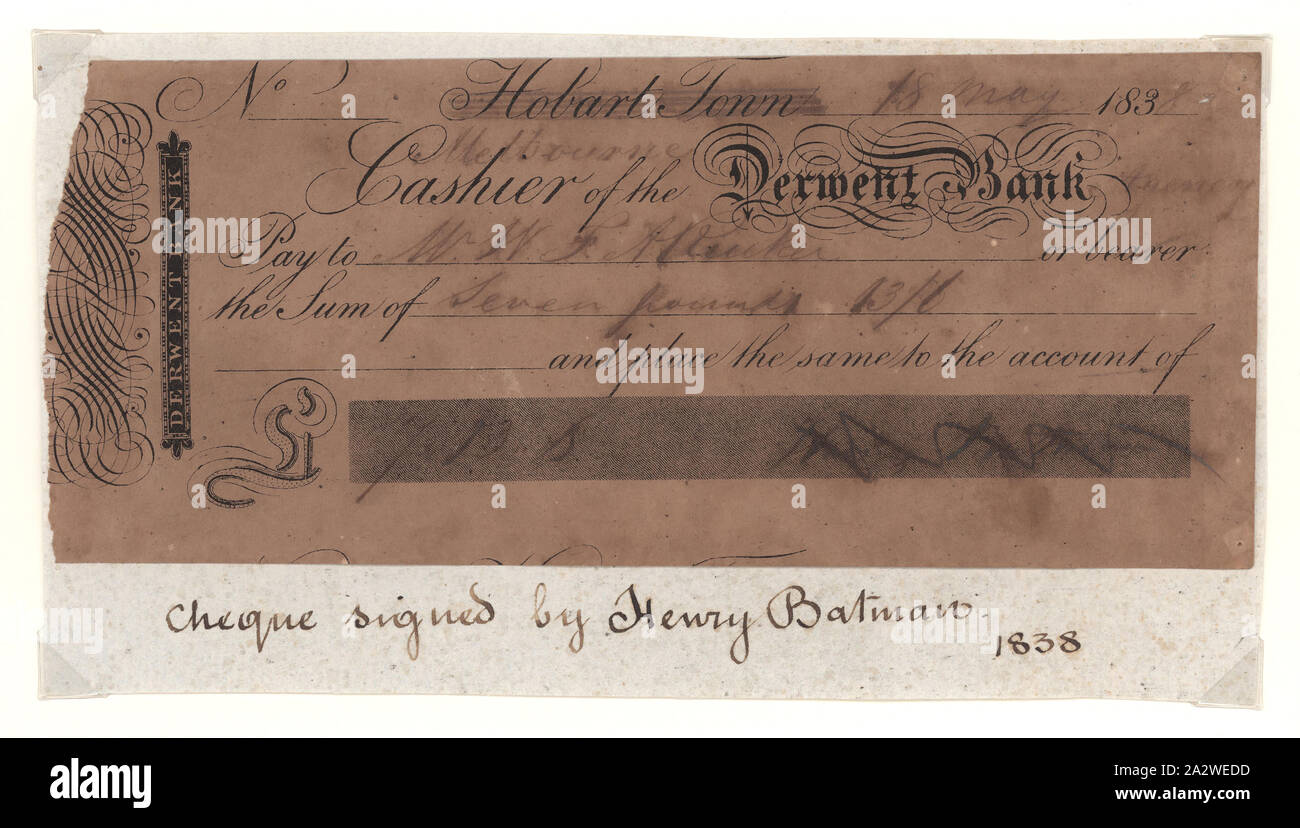 No Hobart Town 18 May 1838
Melbourne
Cashier of the Derwent Bank Agency
Pay to Mr. W. F. A. Rucker or bearer
the Sum of Seven pounds 13/8
and place the same to the account of
£ 7.13.8
DERWENT BANK
Cheque signed by Henry Batman
1838
alamy
Image ID: A2WEDD
www.alamy.com